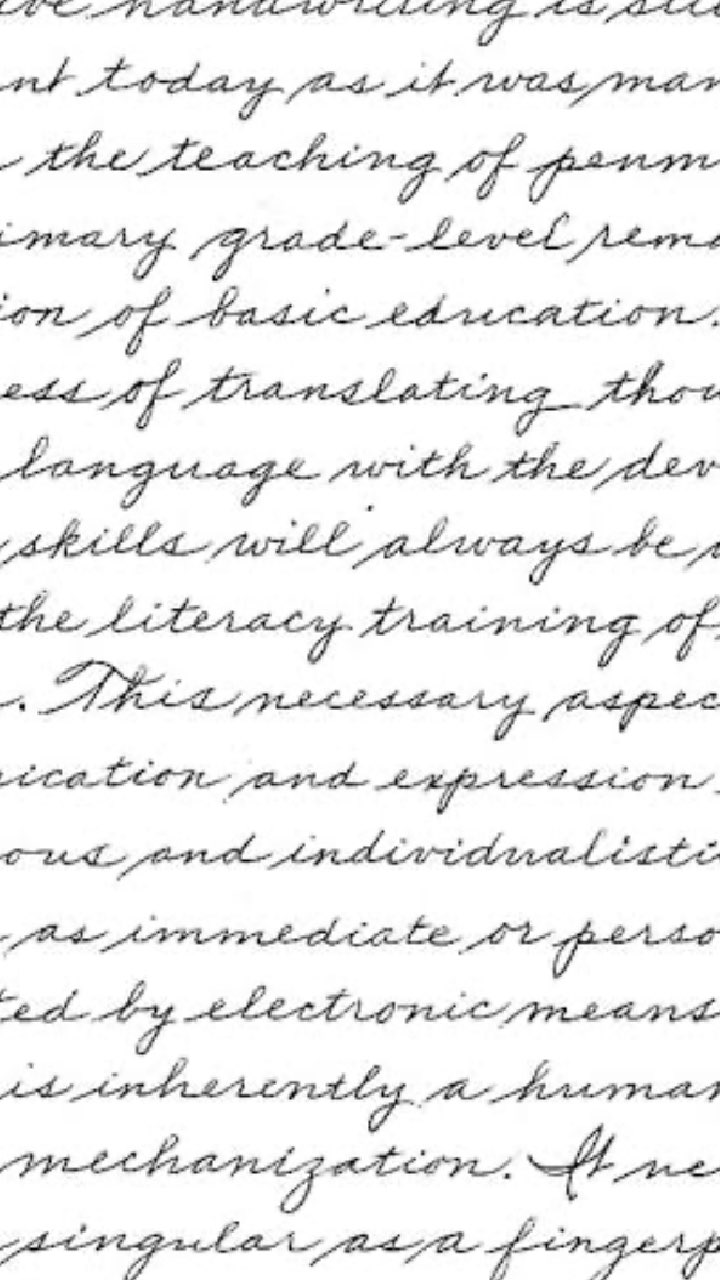 ive handwriting is sti
nt today as it was man
the teaching of penm
imary grade-level rema
ion of basic education.
ess of translating thou
language with the dev
skills will always be
the literacy training of
. This necessary aspec
ication and expression
ous and individualisti
as immediate or perso
ted by electronic means
is inherently a human
mechanization. It ne
singular as a fingerp